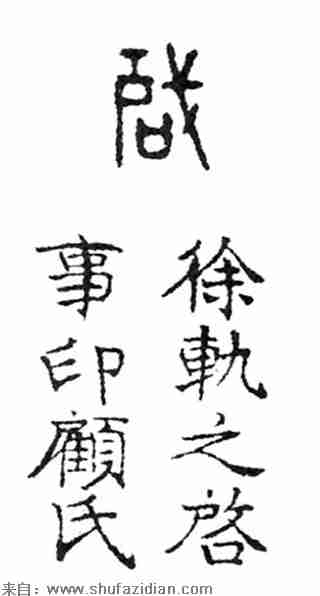 啟
徐軌之啓
事印顧氏
来自：www.shufazidian.com